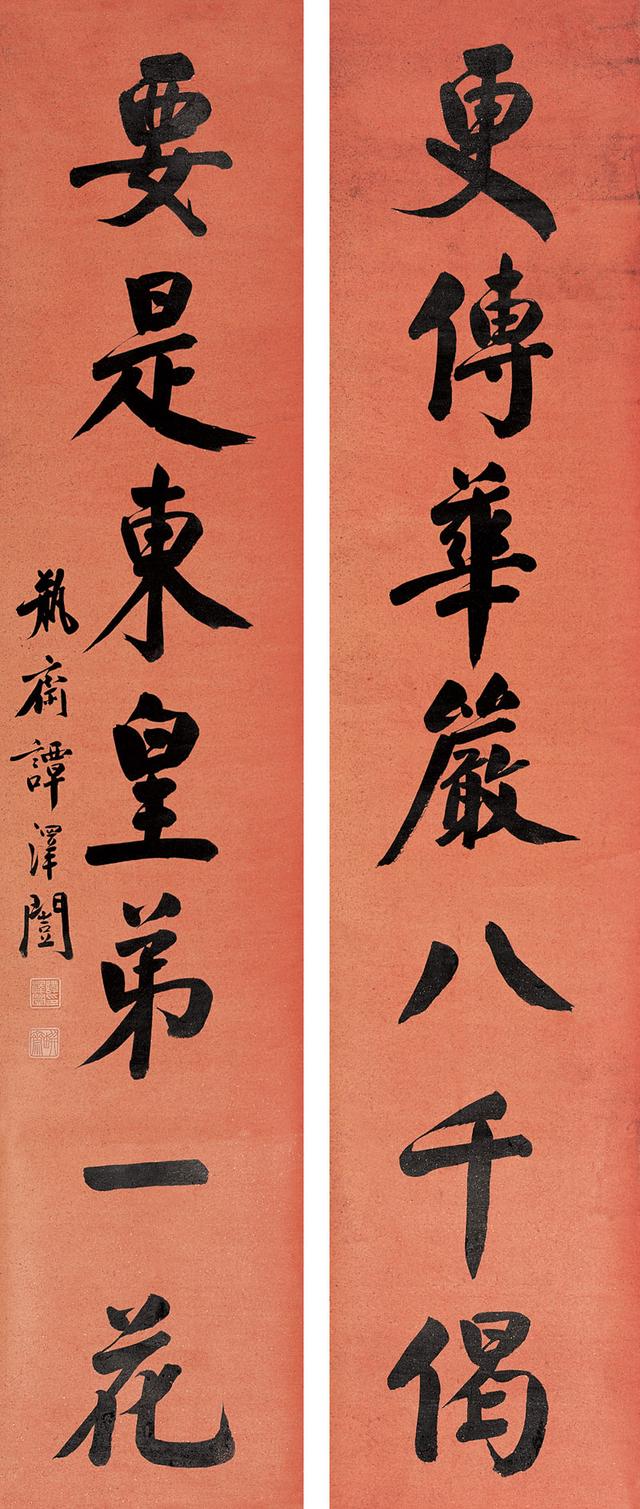 更傳華嚴八千偈
要是東皇弟一花
瓶齋譚澤闓